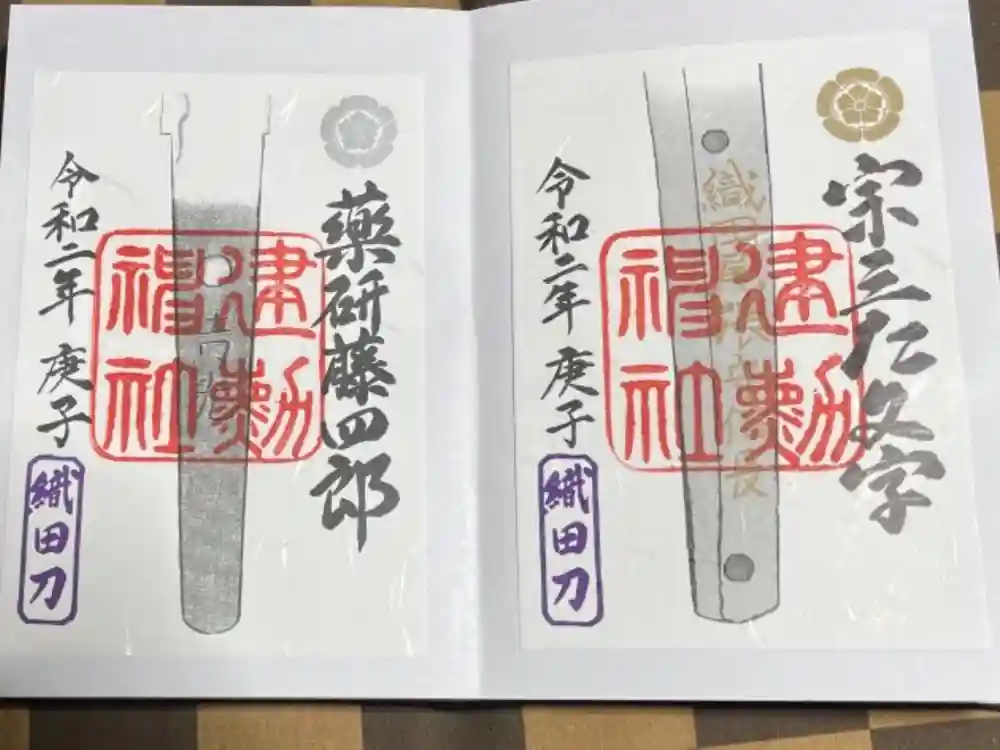 宗三左文字
織田尾張守信長
建勲
神社
令和二年 庚子
織田刀
薬研藤四郎
吉光
建勲
神社
令和二年 庚子
織田刀